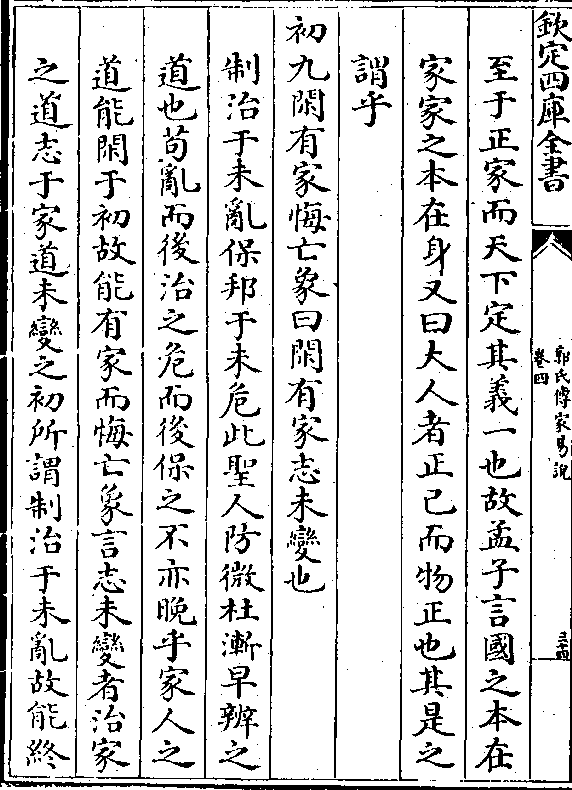 欽定四庫全書
郭氏傳家易說
卷四
三十四
至于正家而天下定其義一也故孟子言國之本在
家家之本在身又曰大人者正己而物正也其是之
謂乎
初九閑有家悔亡象曰閑有家志未變也
制治于未亂保邦于未危此聖人防微杜漸早辨之
道也苟亂而後治之危而後保之不亦晚乎家人之
道能閑于初故能有家而悔亡象言志未變者治家
之道志于家道未變之初所謂制治于未亂故能終